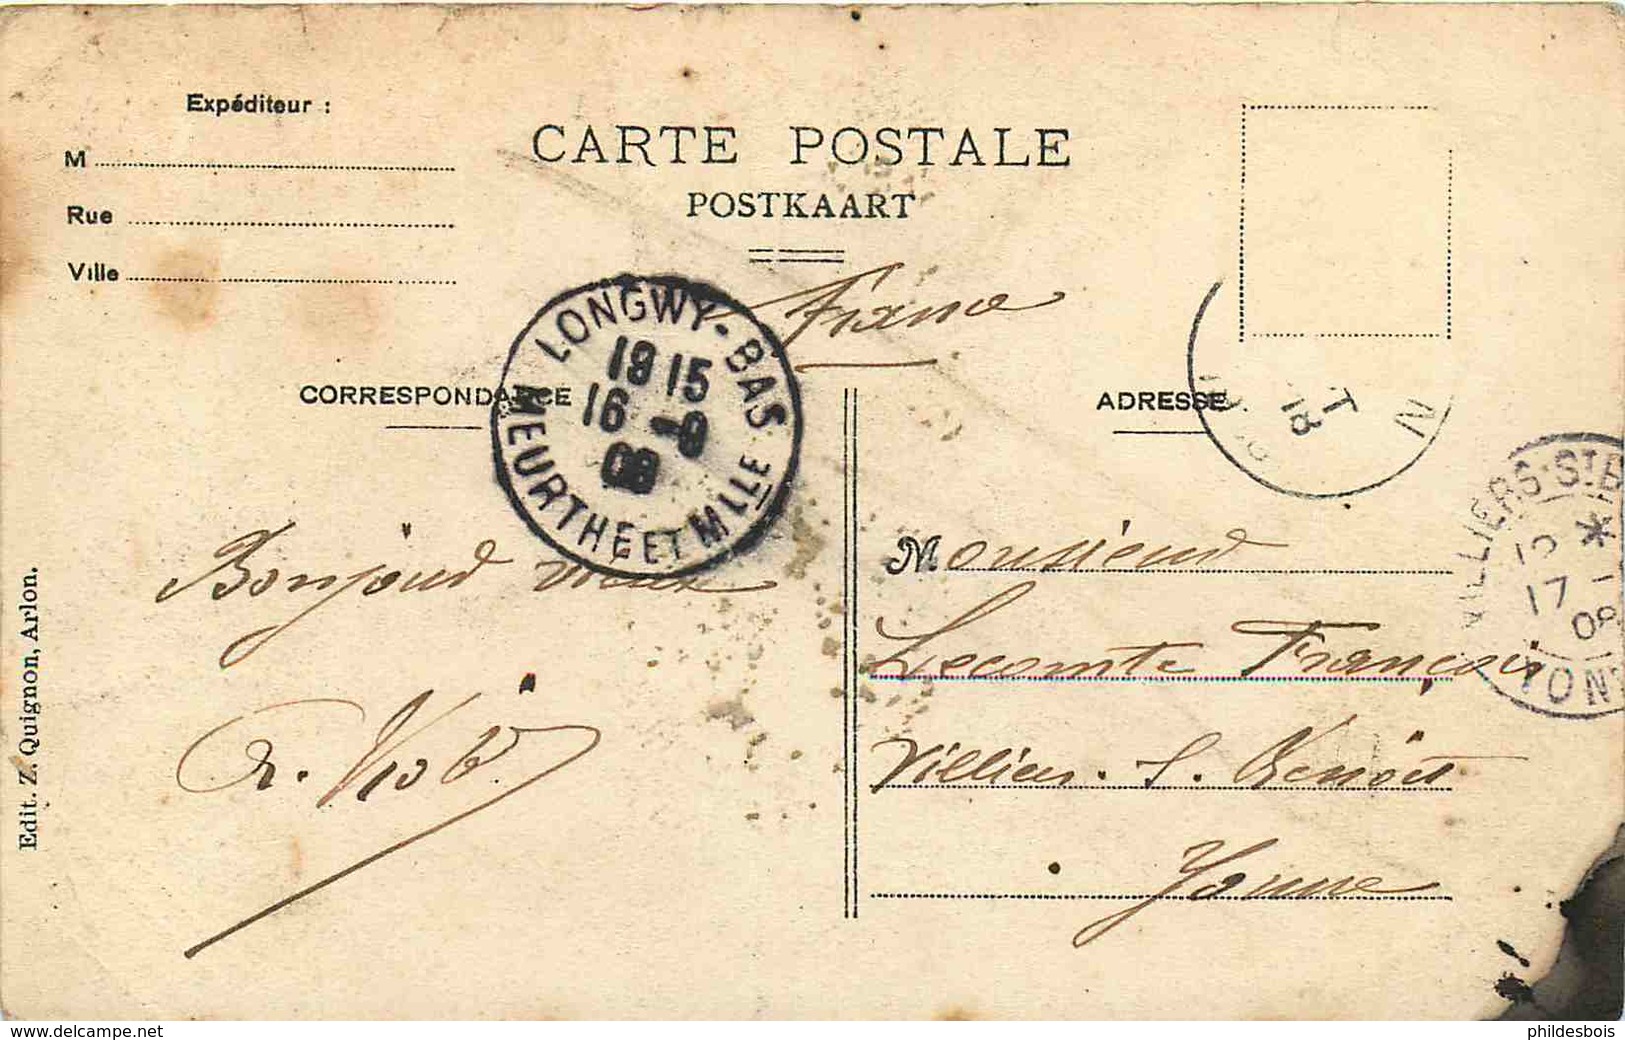 Expéditeur :
M
Rue
Ville
CARTE POSTALE
POSTKAART
France
CORRESPONDANCE
ADRESSE
LONGWY-BAS
19 15
16 -9
08
MEURTHE ET MLLE
VILLIERS-ST B
15 *
17 -
08
YONNE
Bonjour vieux
Monsieur
Lecomte François
Villiers. S. Benoit
Yonne
Edit. Z. Quignon, Arlon.
www.delcampe.net
phildesbois